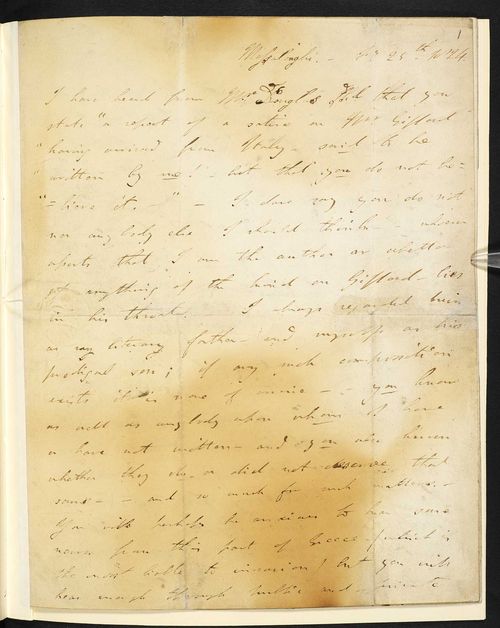 1
Messolonghi. - Fy 25th 1824.
I have heard from Mr Douglas Kd that you
state "a report of a satire on Mr Gifford
"having arrived from Italy - said to be
"written by me! - but that you do not be=
"=lieve it. - " - I dare say you do not
nor any body else I should think - whoever
asserts that I am the author or abettor
of anything of the kind on Gifford - lies
in his throat. I always regarded him
as my literary father - and myself as his
prodigal son; if any such composition
exists it is none of mine - - you know
as well as any body upon whom I have
or have not written - and you also know
whether they do or did not deserve that
same - - and so much for such matters. -
You will perhaps be anxious to hear some
news from this part of Greece - (which is
the most liable to invasion) but you will
hear enough through public and private